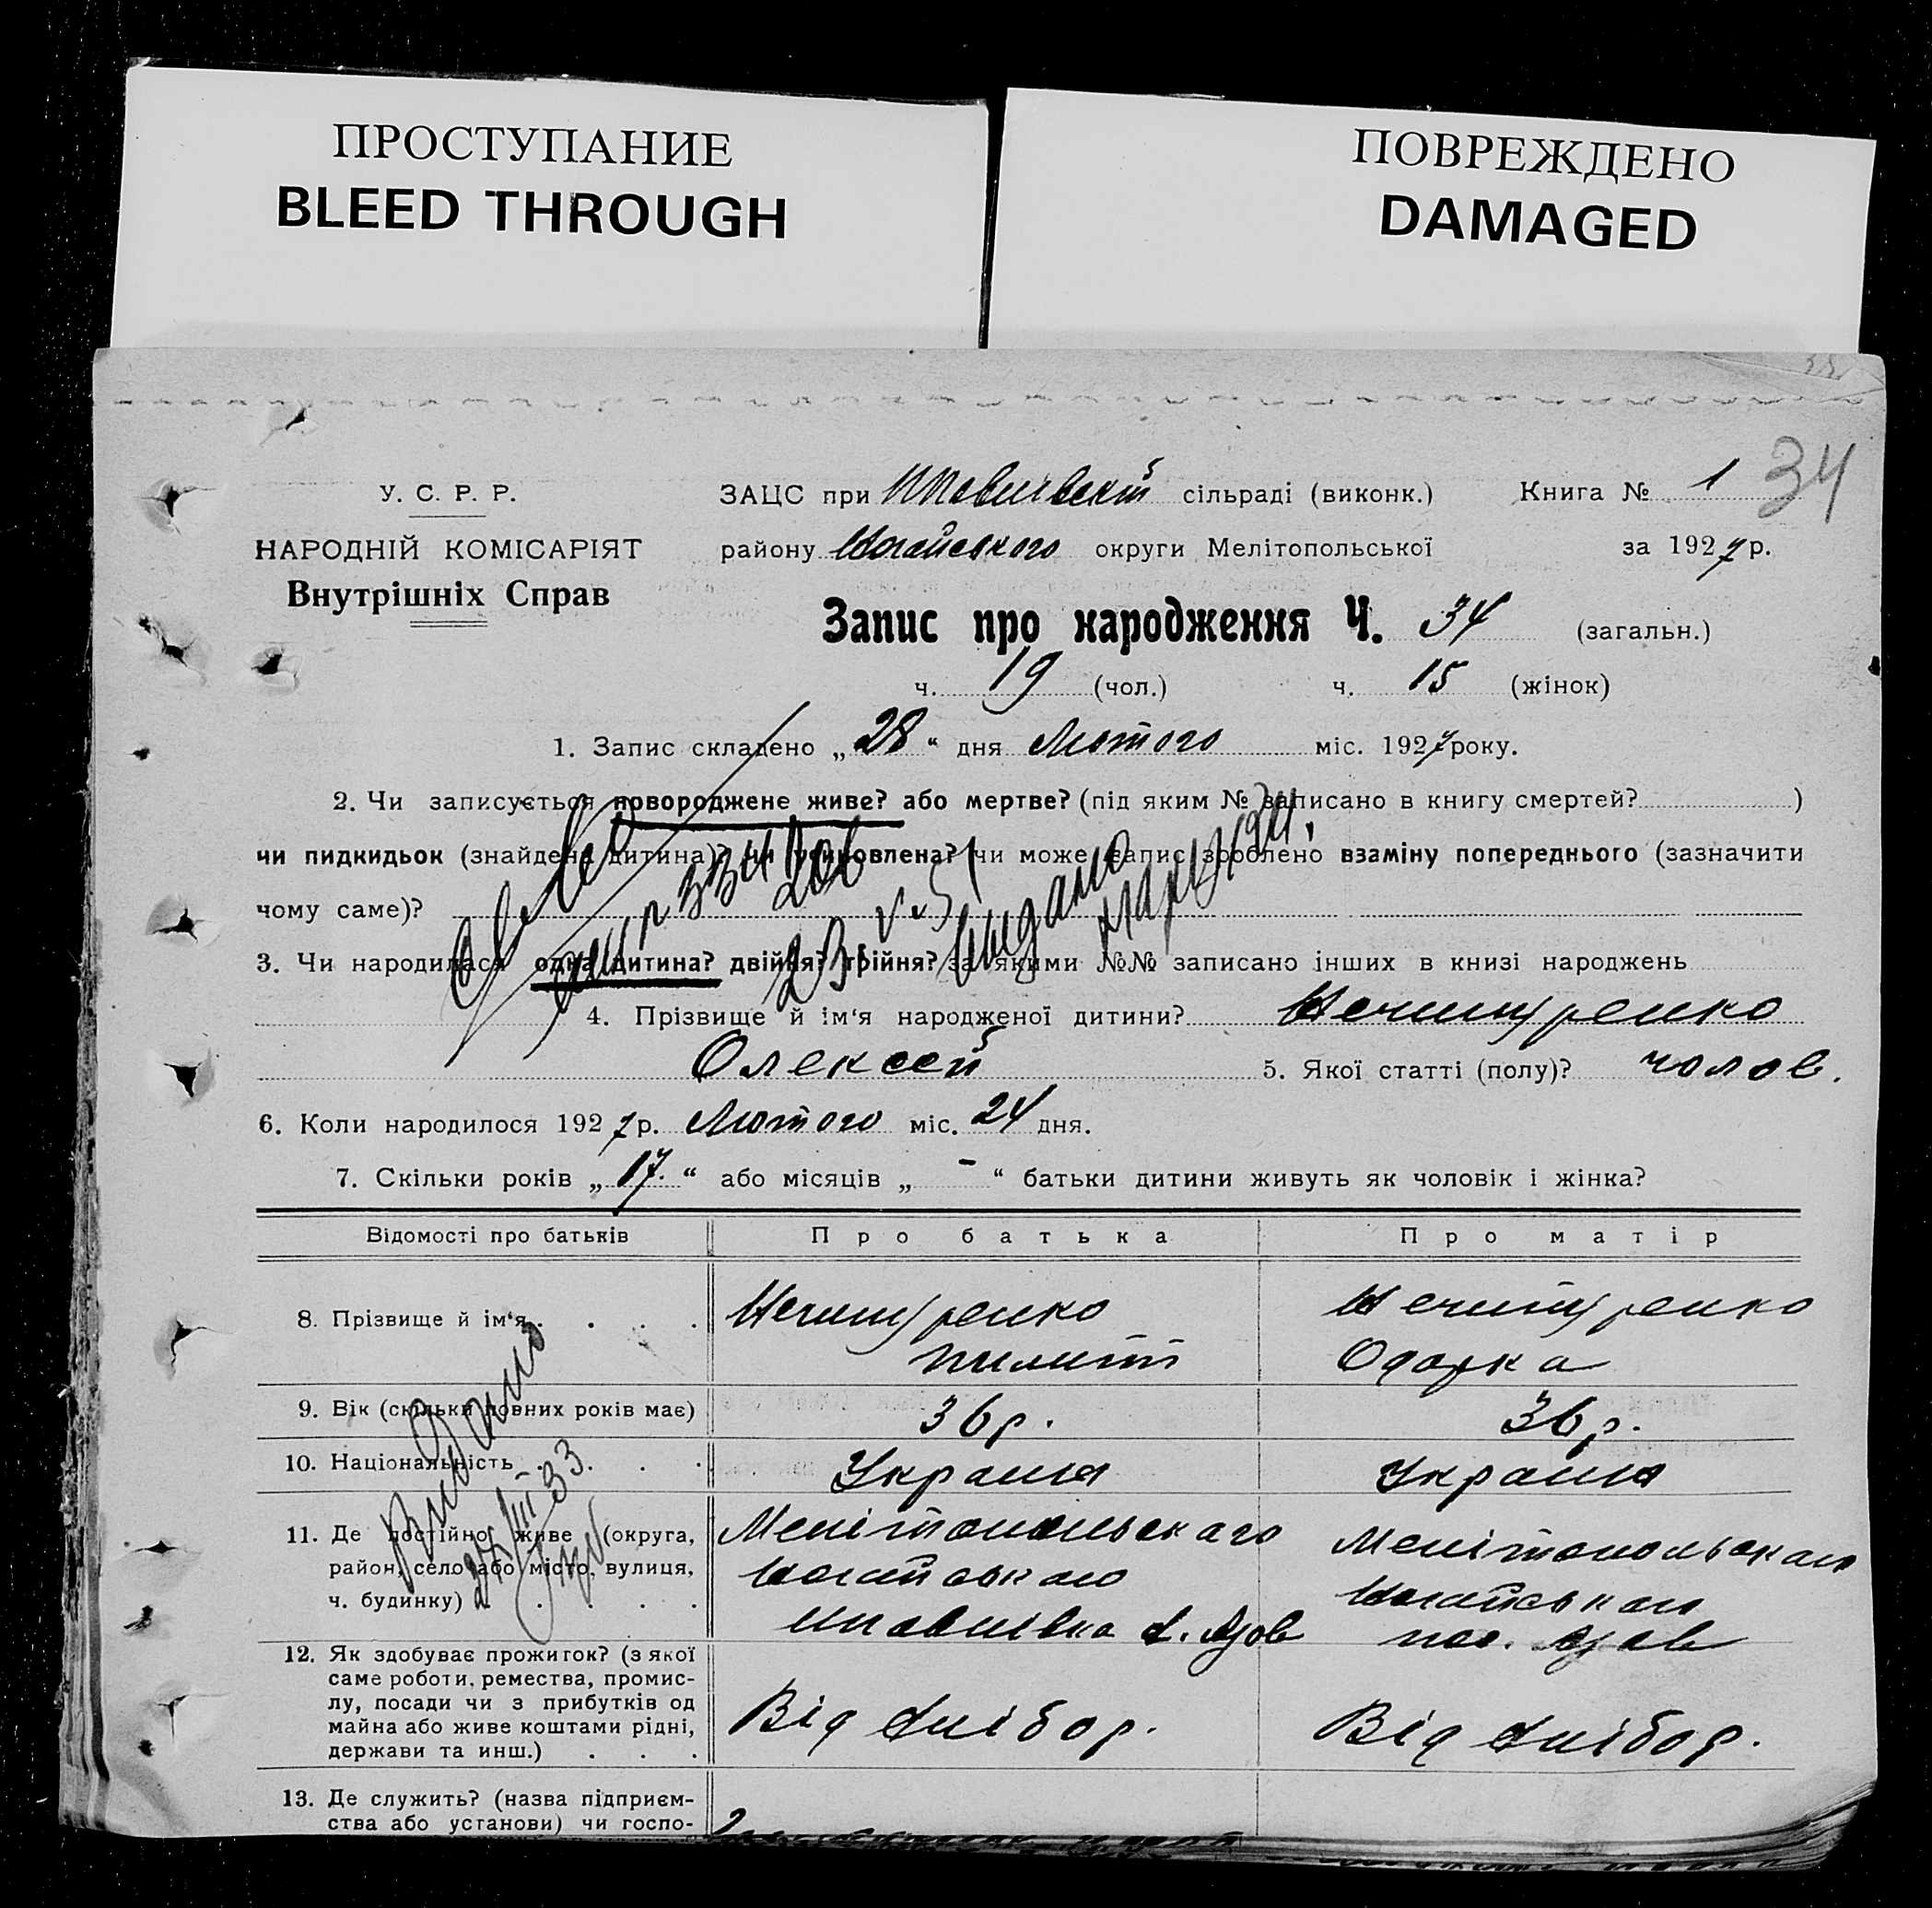 ПРОСТУПАНИЕ
BLEED THROUGH
ПОВРЕЖДЕНО
DAMAGED
34
У. С. Р. Р.
НАРОДНІЙ КОМІСАРІЯТ
Внутрішніх Справ
ЗАЦС при сільраді (виконк.) Книга № 1
району Ногайського округи Мелітопольської за 1927 р.
Запис про народження Ч. 34 (загальн.)
ч. 19 (чол.) ч. 15 (жінок)
1. Запис складено „28“ дня Лютого міс. 1927 року.
2. Чи записується новороджене живе? або мертве? (під яким № записано в книгу смертей? )
чи пидкидьок (знайдена дитина)? чи усиновлена? чи може запис зроблено взаміну попереднього (зазначити
чому саме)?
3. Чи народилася одна дитина? двійня? трійня? за якими №№ записано інших в книзі народжень
4. Прізвище й ім‘я народженої дитини? Нечипуренко
Олексей 5. Якої статті (полу)? чолов.
6. Коли народилося 1927 р. Лютого міс. 24 дня.
7. Скільки років „17.“ або місяців „-“ батьки дитини живуть як чоловік і жінка?
Відомості про батьків Про батька Про матір
8. Прізвище й ім‘я . . . . Нечипуренко Нечипуренко
Пилипп Одарка
9. Вік (скільки повних років має) 36 р. 36 р.
10. Національність . . . . Украин Украин
11. Де постійно живе (округа, Мелітопольского Мелітопольского
район, село або місто, вулиця, Ногайського Ногайського
ч. будинку) . . . . Азов пос. Азов
12. Як здобуває прожиток? (з якої
саме роботи, ремества, промис-
лу, посади чи з прибутків од
майна або живе коштами рідні, Від хлібор. Від хлібор.
держави та инш.) . . .
13. Де служить? (назва підприєм-
ства або установи) чи госпо-
Видано